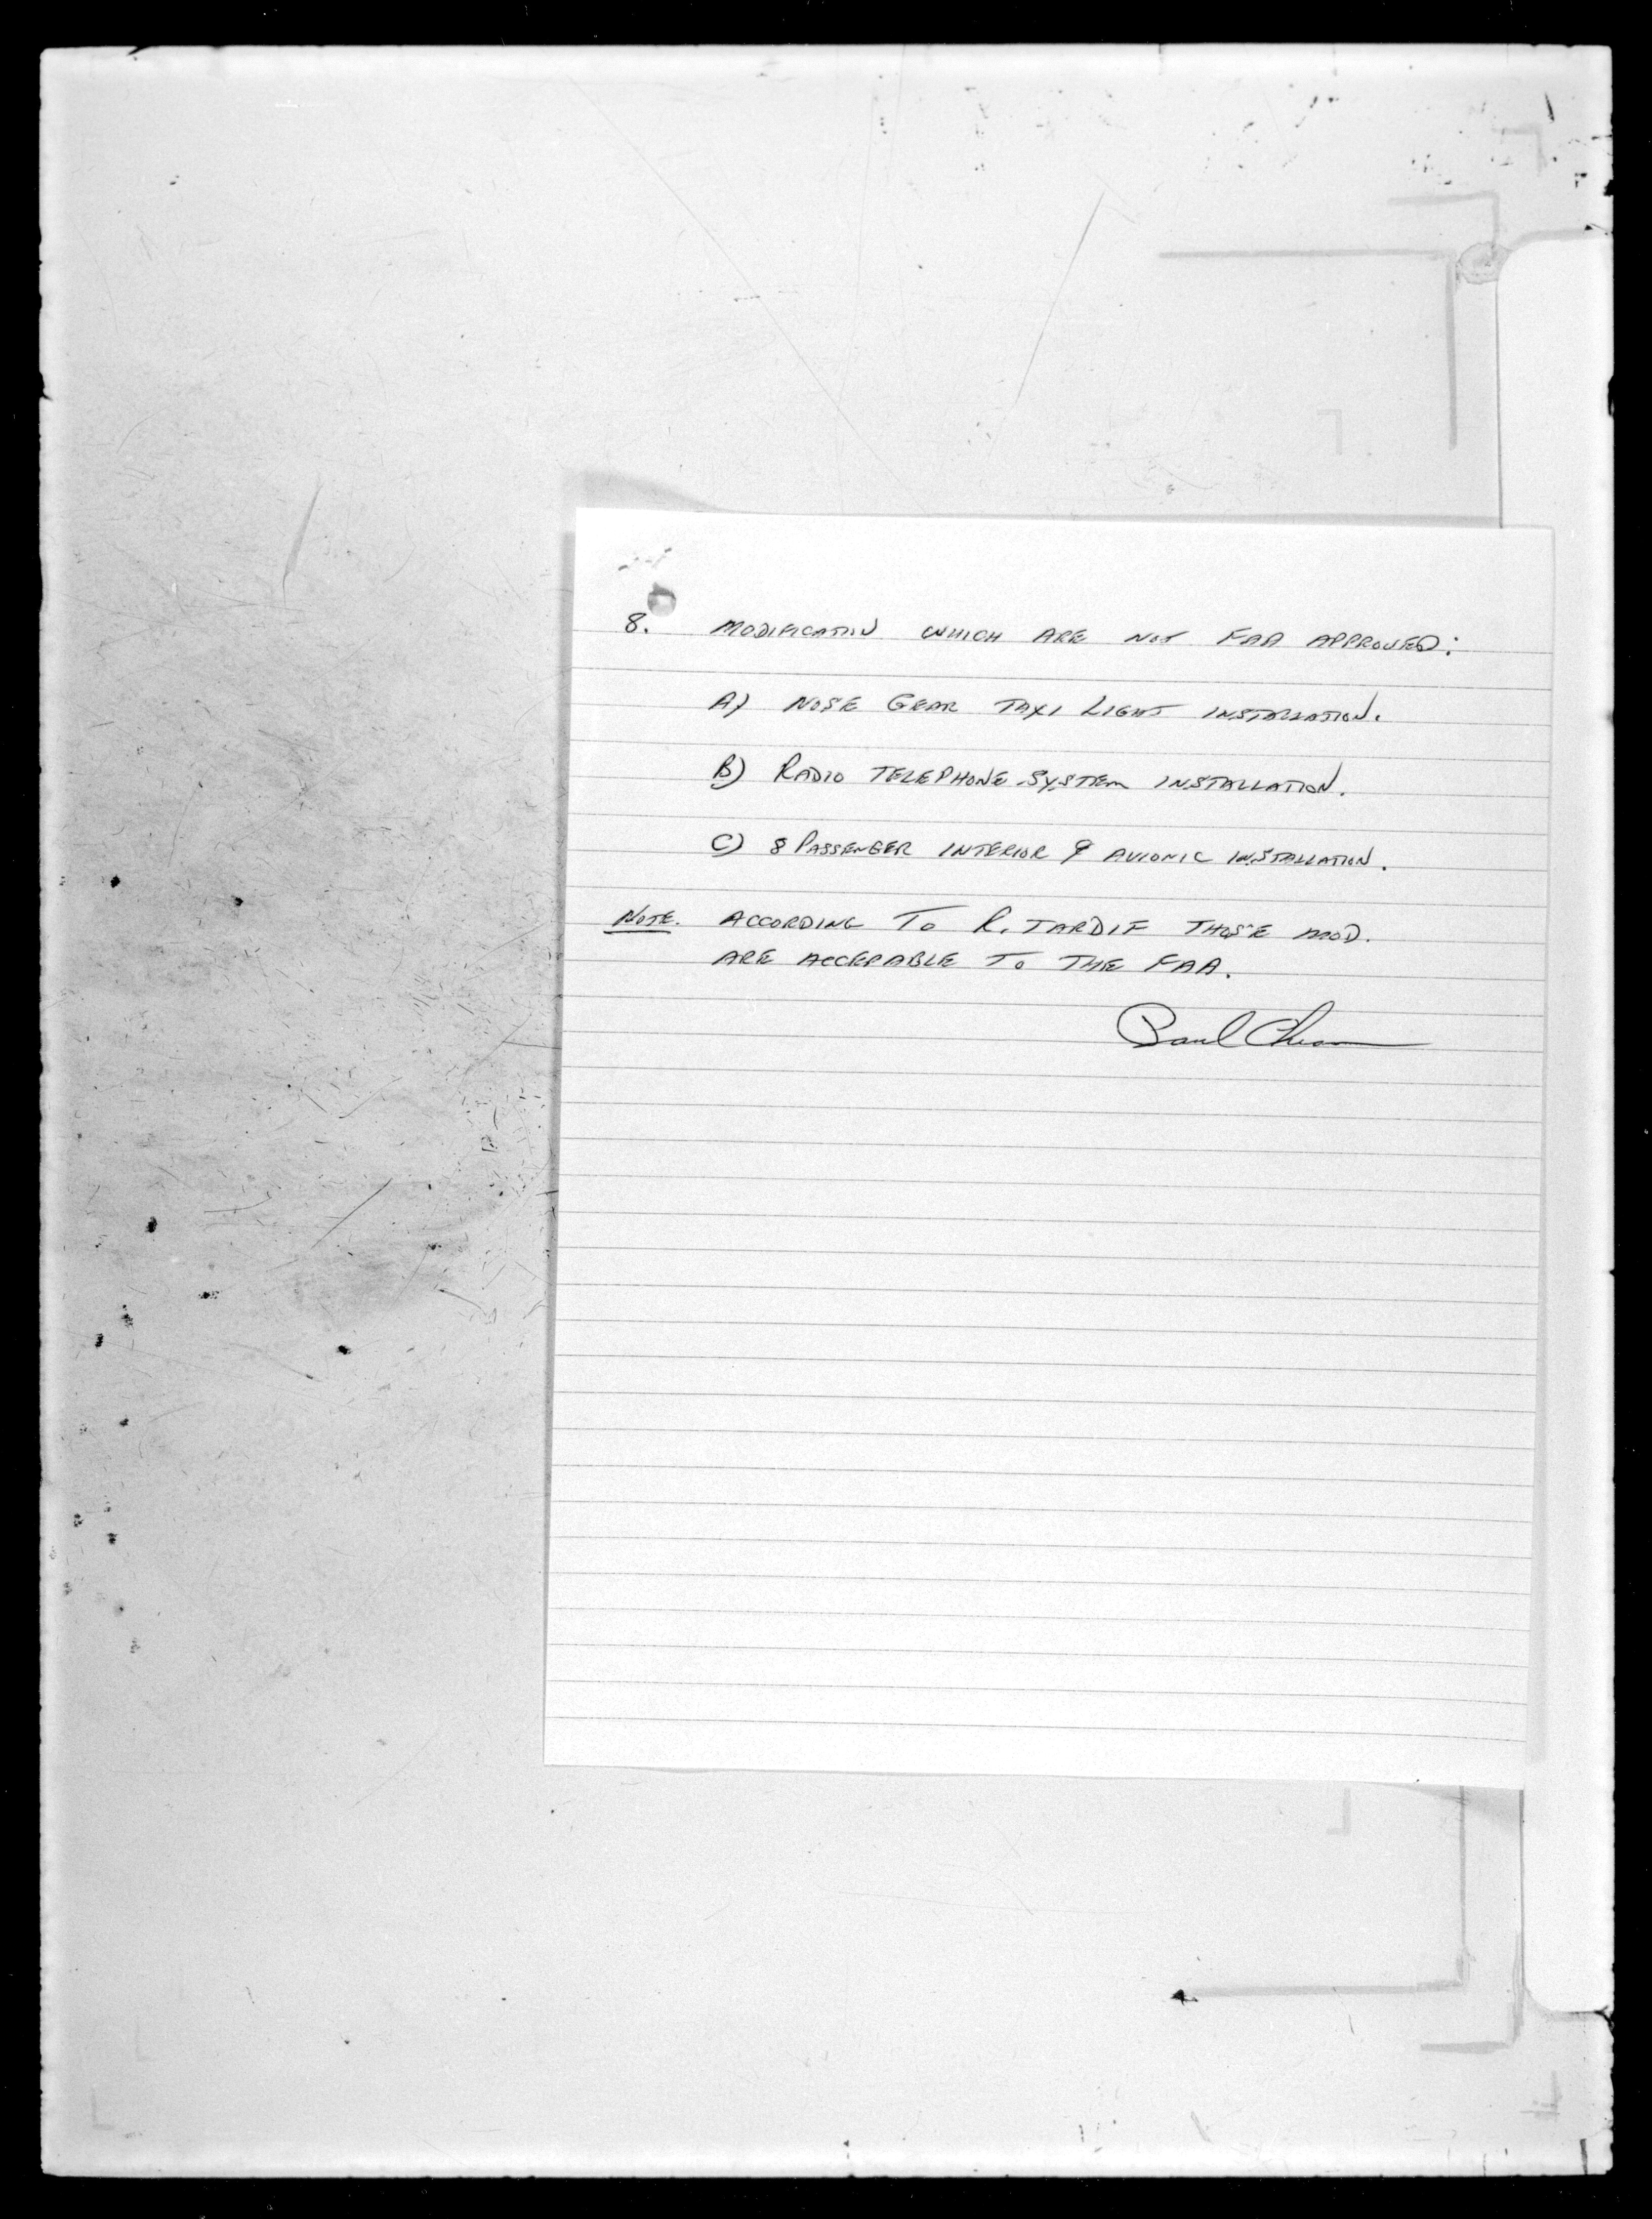 8. MODIFICATION WHICH ARE NOT FAA APPROVED:
A) NOSE GEAR TAXI LIGHT INSTALLATION.
B) RADIO TELEPHONE SYSTEM INSTALLATION.
C) 8 PASSENGER INTERIOR & AVIONIC INSTALLATION.
NOTE. ACCORDING TO R. TARDIF THOSE MOD.
ARE ACCEPABLE TO THE FAA.
Paul